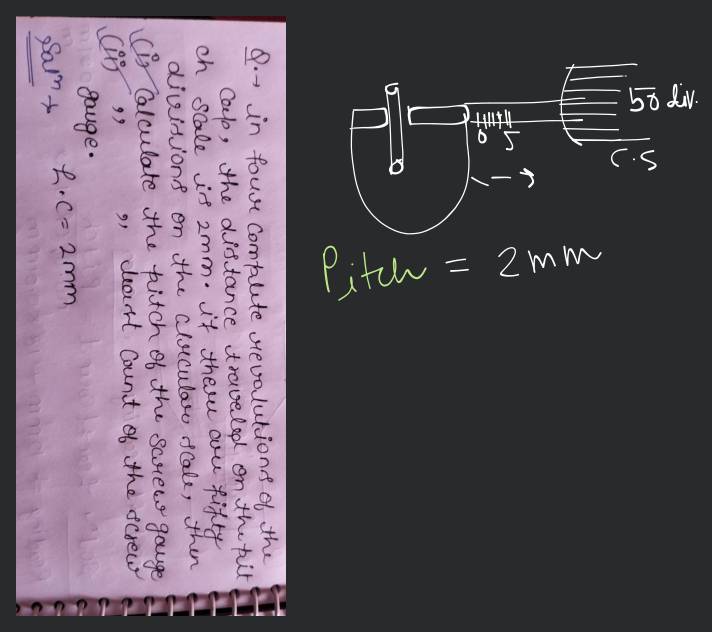 Q.→ in four complete revalutions of the
cap, the distance traveled on the pit
ch scale is 2mm. if there are fifty
divisions on the circular scale, then
(i) Calculate the pitch of the screw gauge
(ii) ,, ,, least count of the screw
gauge.
h.c = 2mm
50 div.
0 5
C.S
Pitch = 2mm